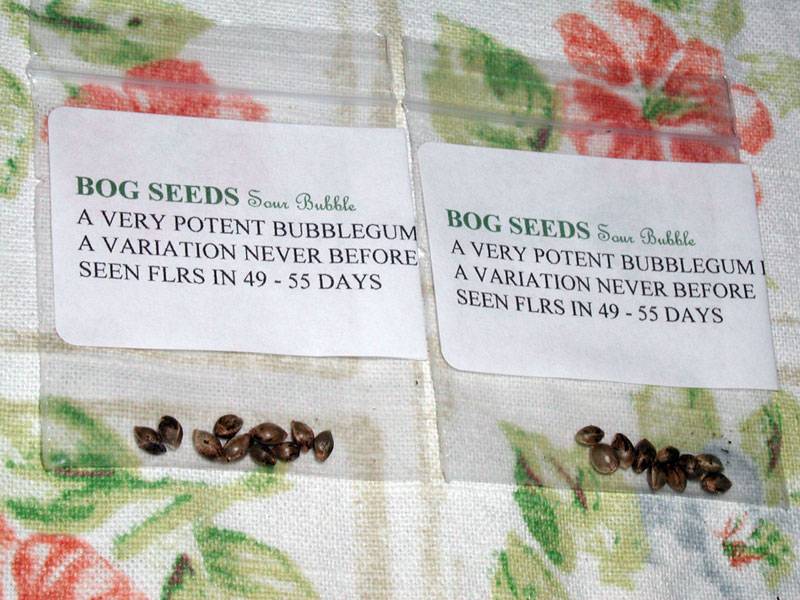 BOG SEEDS Sour Bubble
A VERY POTENT BUBBLEGUM
A VARIATION NEVER BEFORE
SEEN FLRS IN 49 - 55 DAYS
BOG SEEDS Sour Bubble
A VERY POTENT BUBBLEGUM
A VARIATION NEVER BEFORE
SEEN FLRS IN 49 - 55 DAYS